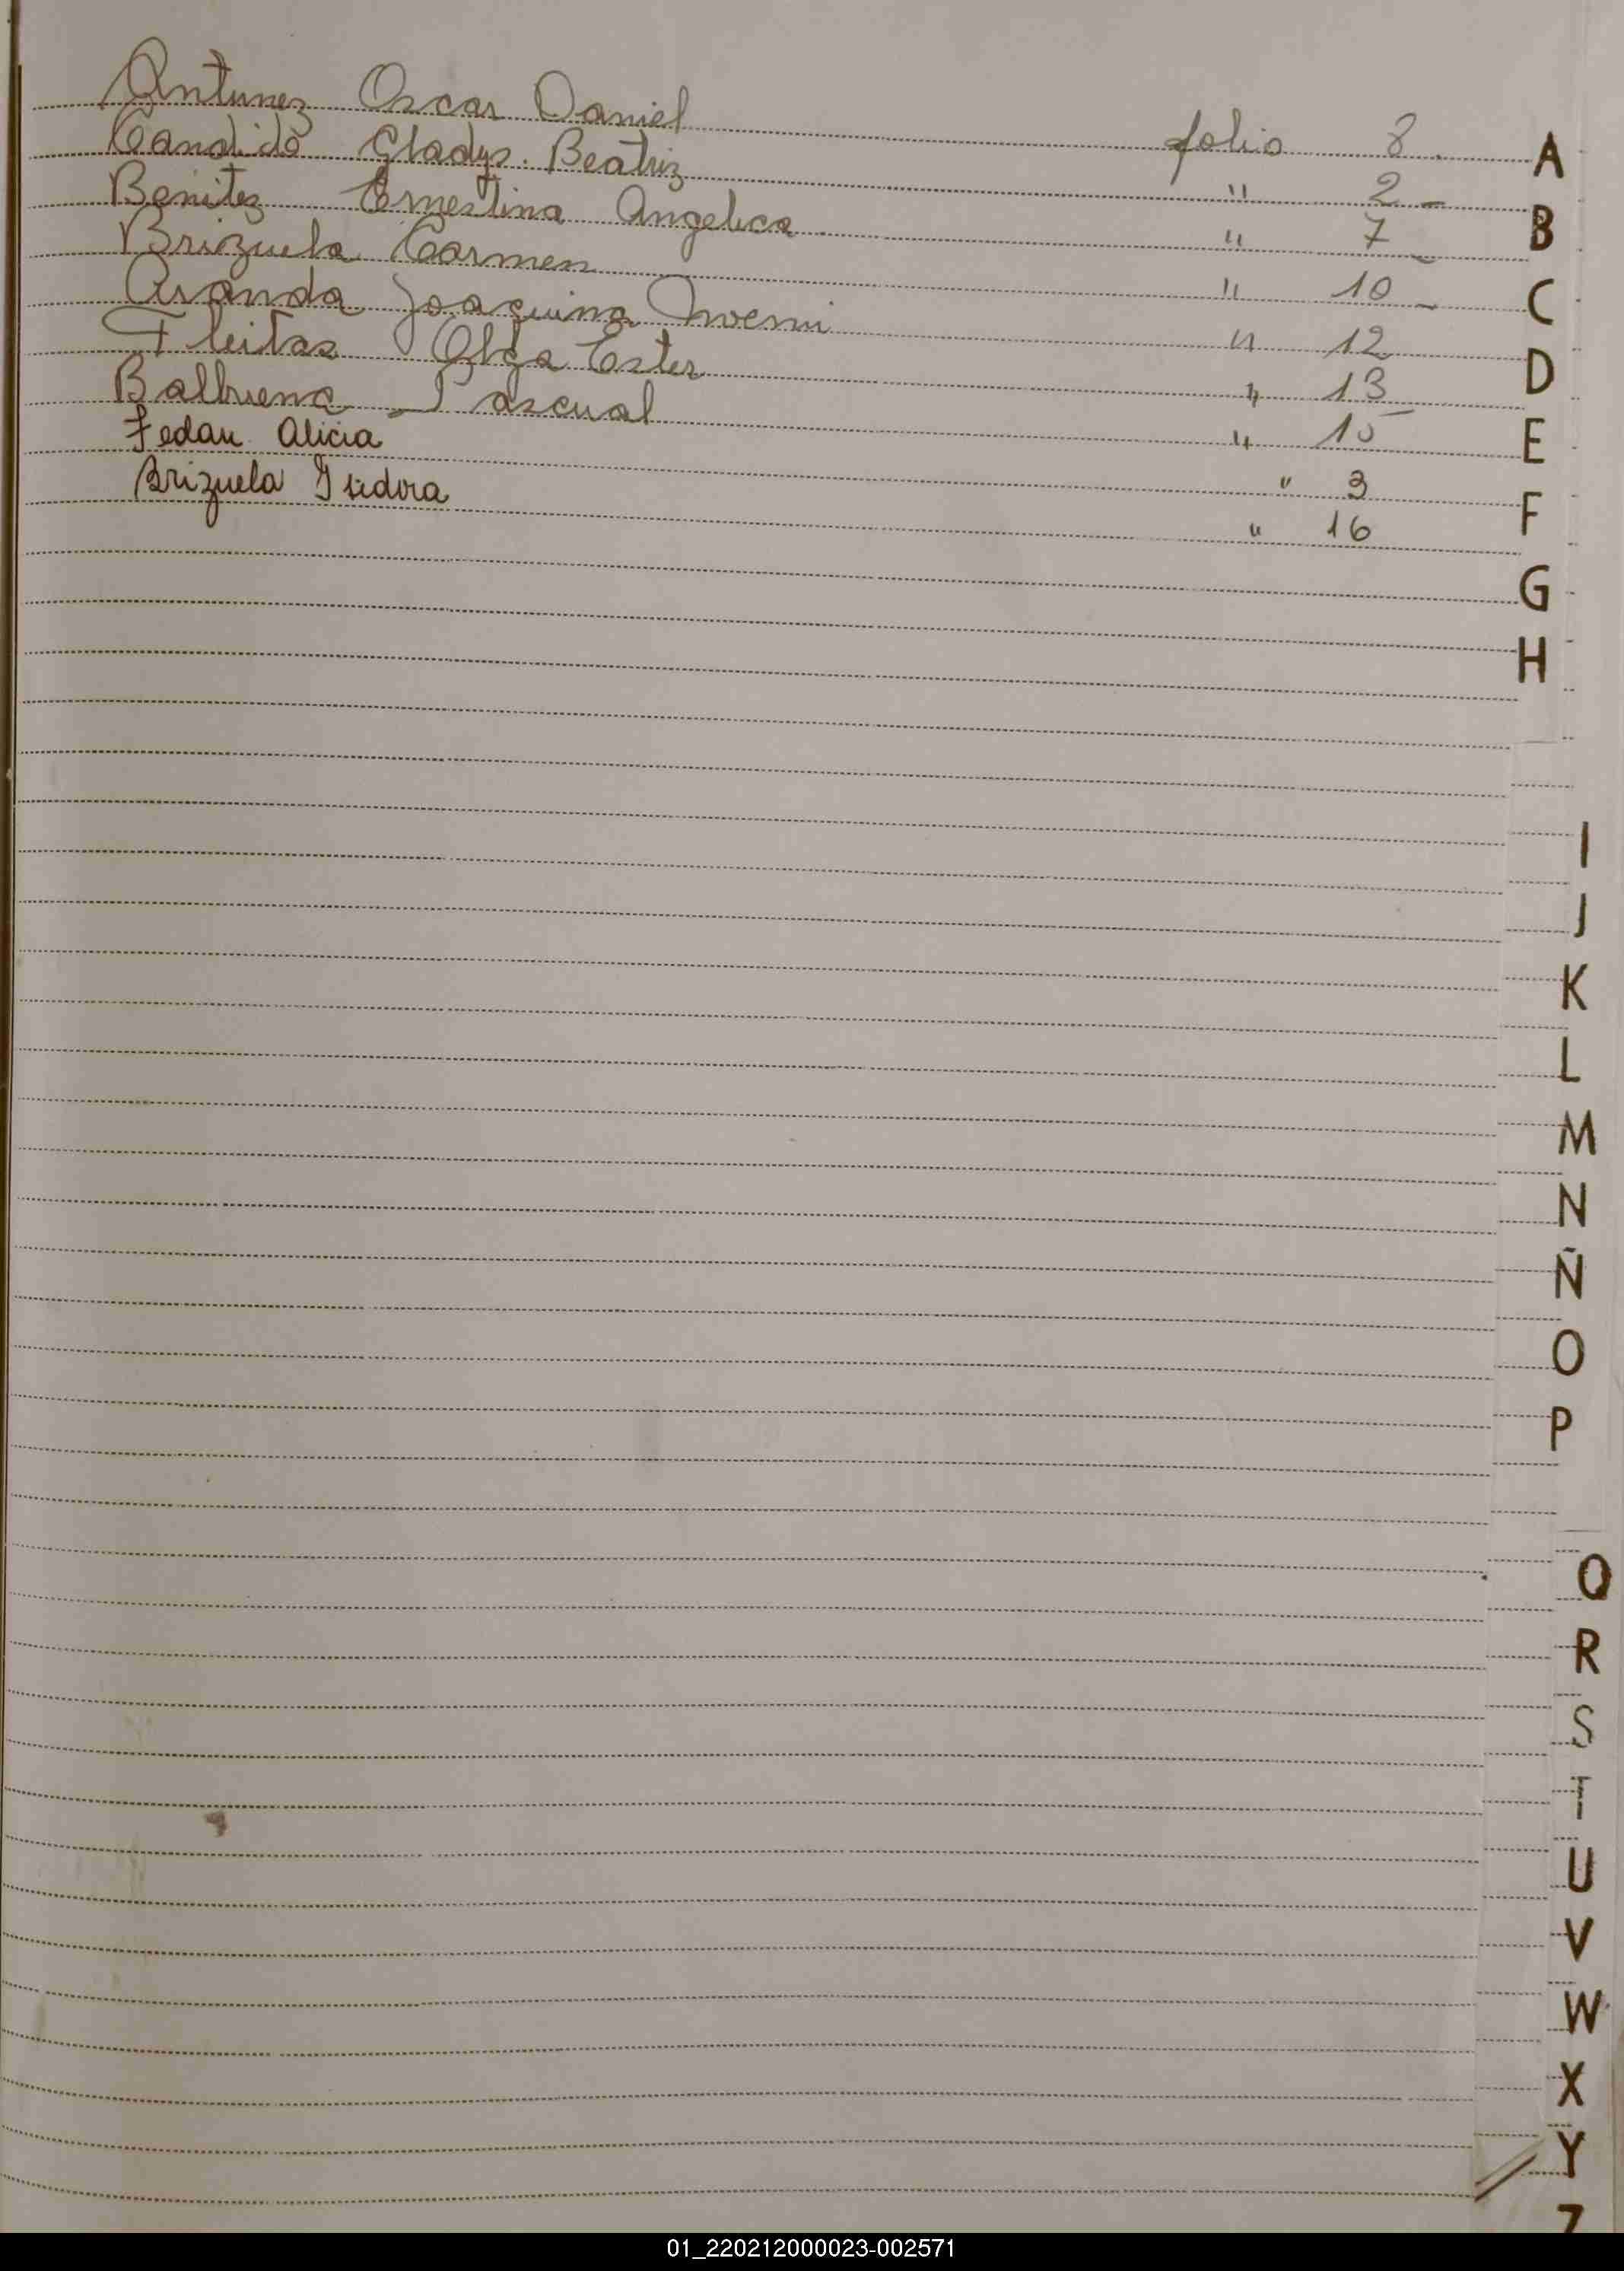 Antunez Oscar Daniel folio 8.
Candido Gladys. Beatriz " 2 -
Benitez Ernestina Angelica " 7 -
Brizuela Carmen " 10 -
Aranda Joaquina Noemi " 12
Fleitas Olga Ester " 13
Balbuena Pascual " 15
Fedau Alicia " 3
Brizuela Isidora " 16
A
B
C
D
E
F
G
H
I
J
K
L
M
N
Ñ
O
P
Q
R
S
T
U
V
W
X
Y
Z
01_220212000023-002571